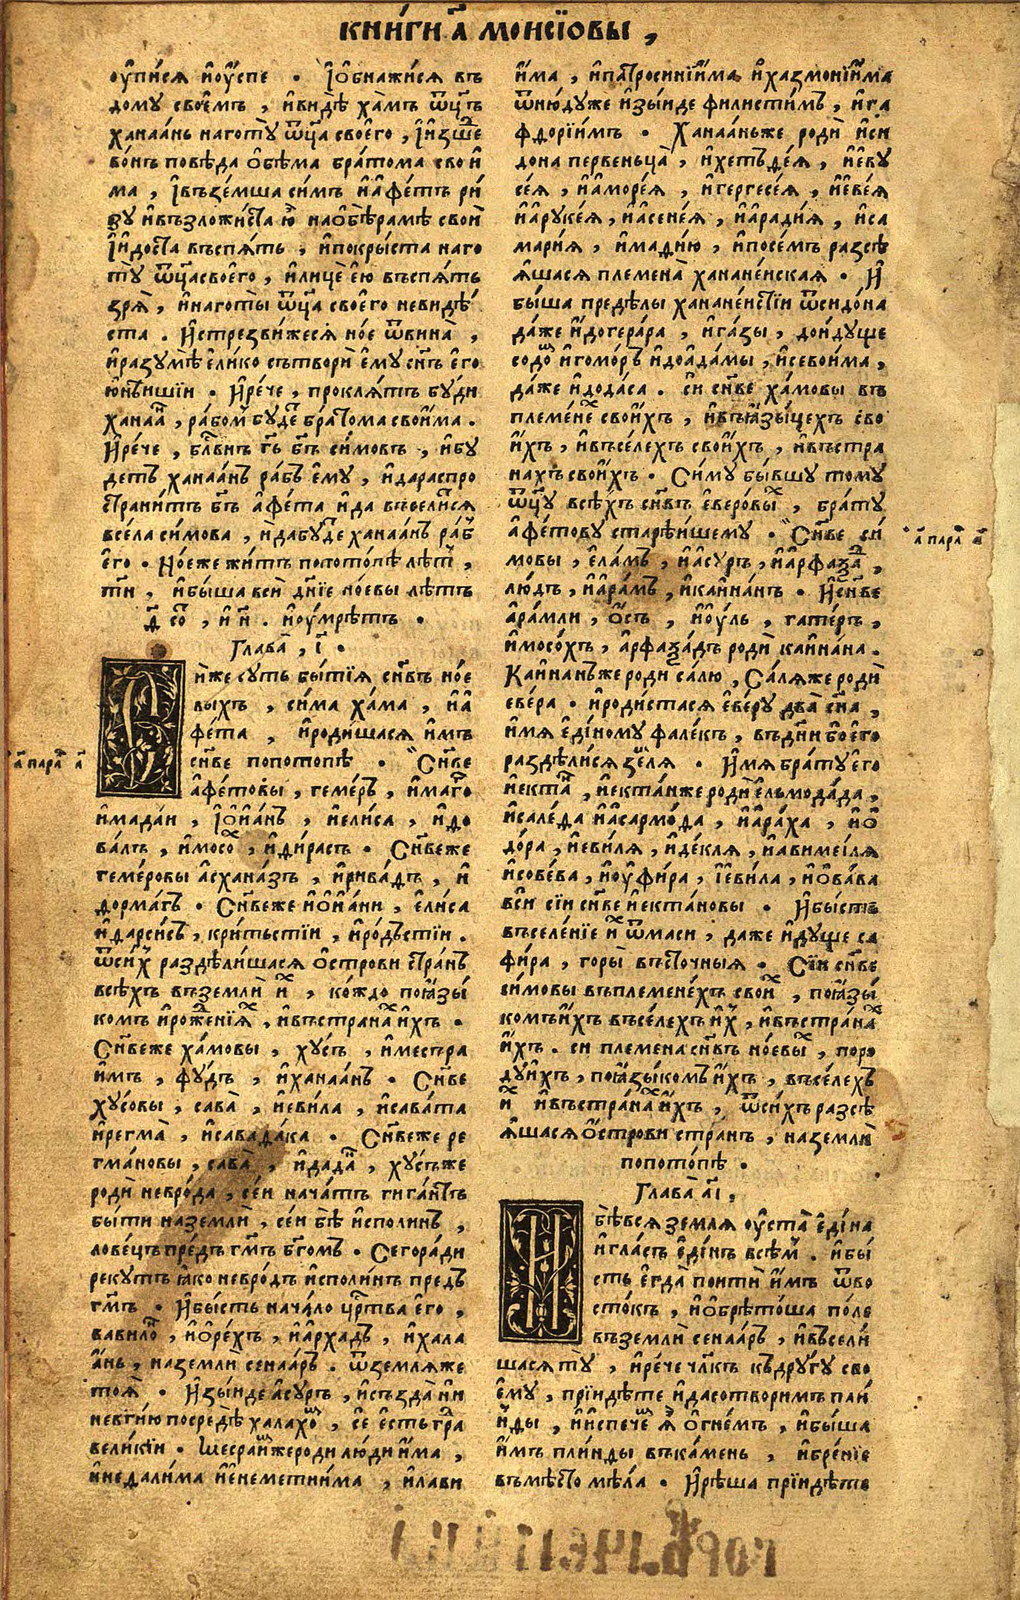 КНИ́ГИ А҃ МОИСІ́ОВЫ ,
оу҆пи́сѧ и҆оу҆́спе . І҆ѡ҆бнажи́сѧ въ
дому свое́мъ , и҆ви́дѣ ха́мъ ѿц҃ъ
ханаа́нь наготу̀ ѿц҃а своего̀ , и҆изше́
во́нъ пове́да ѻ҆бѣ́ма бра́тома свои҆
ма , І҆възе́мша си́мъ и҆а҆фе́тъ ри́
зу и҆възложи́ста ю҆̀ наѻ҆бѣ ра́мѣ свои҆
І҆и҆до́ста въспѧ́ть , и҆покры́ста наго
ту̀ ѿц҃а своего̀ , и҆лицѐ е҆ю̀ въспѧ́ть
зрѧ̀ , и҆наготы̀ ѿц҃а своего̀ неви́дѣ
ста . И҆стрезви́жесѧ но́е ѿвина̀ ,
и҆разумѣ̀ е҆ли́ко сътворѝ е҆му̀ сн҃ъ е҆го̀
ю҆нѣ́ишіи . И҆рече , про́клѧтъ бу́ди
ханаа́н , ра́бом бу́де бра́тома свои́ма .
И҆рече , бл҃ве́нъ гь҃ бг҃ъ си́мовъ , и҆бу́
детъ ханаа́нъ ра́бъ е҆му̀ , и҆дараспро
страни́тъ бг҃ъ а҆фе́та и҆да въсели́сѧ
всела си́мова , и҆дабу́де ханаа́нъ ра́б
е҆го̀ . Но́еже жи́тъ попото́пѣ лѣ́т ,
тн҃ , и҆бы́ша всѝ дн҃іе но́евы лѣ́тъ
ц҃ со҃ , и҆ н҃ . и҆оу҆мрѣ́тъ .
Глава̀ , і҃ .
И́же суть бытїѧ̀ сн҃въ но́е
выхъ , си́ма ха́ма , и҆а҆
фе́та , и҆роди́шасѧ и҆́мъ
сн҃ве попото́пѣ . Сн҃ве
а҆фе́товы , гаме́ръ , и҆маго́
и҆мада́и , І҆ѡ҆и҆а́нъ , и҆е҆ли́са , и҆до
ва́лъ , и҆мосо́ , и҆ди́расъ . Сн҃веже
геме́ровы а҆схана́зъ , и҆рива́дъ , и҆
дорма́гъ . Сн҃веже и҆ѻ҆и҆а́ни , е҆ли́са
и҆дарси́съ , кри́тьстіи , и҆ро́дьстіи .
ѿси́х раздѣли́шасѧ ѻ҆́строви стра́нъ
всѣ́хъ въземлѝ и҆х , ко́ждо поѩ҆зы́
комъ и҆роже́нїѧ , и҆въстрана и҆́хъ .
Сн҃веже ха́мовы , ху́съ , и҆местра
и҆́мъ , фу́дъ , и҆ханаа́нъ . Сн҃ве
ху́совы , сава̀ , и҆еви́ла , и҆сава́та
и҆регма̀ , и҆савада́ка . Сн҃веже ре
гма́новы , сава̀ , и҆дада́ , ху́съже
родѝ невро́да , се́и нача́тъ гига́нтъ
бы́ти на землѝ , се́и бѣ̀ и҆споли́нъ ,
лове́цъ пре́дъ гм҃ъ бг҃омъ . Сего́ра́ди
реку́тъ ѩ҆́ко невро́дъ и҆споли́нъ пре́дъ
гм҃ъ . И҆бы́сть нача́ло црт҃ва е҆го̀ ,
вавило́ , и҆ѻ҆ре́хъ , и҆а҆рха́дъ , и҆хала
а́нь , на землѝ сенаа́ръ . ѿземлѧ́же
тоѧ̀ . И҆зы́иде а҆су́ръ , и҆създа̀ ни
невгі́ю посредѣ̀ халахо́ , сѐ е҆сть гра
вели́кіи . месраи́мжероди лю́ди и҆́ма ,
и҆недали́ма и҆е҆неметии́ма , и҆лави
и҆́ма , и҆патросинїи́ма и҆хазмонїи́ма
ѿню́дуже и҆зы́иде филисти́мъ , и҆га
фдорїи́мъ . Ханаа́ньже родѝ и҆си
до́на пе́рвеньца̀ , и҆хетьде́ѧ , и҆е҆ву
се́ѧ , и҆а҆море́ѧ , и҆гергесе́ѧ , и҆е҆ве́ѧ
и҆а҆руке́ѧ , и҆а҆сене́ѧ , и҆а҆ради́ѧ , и҆са
мари́ѧ , и҆мади́ю , и҆посе́мъ разсѣ
ѧ́шасѧ племена̀ ханане́искаѧ . И҆
бы́ша предѣ́лы ханане́истїи ѿсидо́на
да́же и҆догера́ра , и҆га́зы , дои́дуще
содо́ и҆гомо́ръ и҆доада́мы , и҆севои́ма ,
да́же и҆дода́са . си сн҃ве ха́мовы въ
племе́не свои́хъ , и҆въѩ҆зы́цехъ сво
и҆́хъ , и҆въсе́лехъ свои́хъ , и҆въстра
на́хъ свои́хъ . Си́му бы́вшу тому
ѿц҃у всѣ́хъ сн҃въ е҆веровы , бра́ту
а҆фе́тову старѣ́ишему . Сн҃ве си́
мовы , е҆ла́мъ , и҆а҆су́ръ , и҆а҆рфаѯа́ ,
лю́дъ , и҆а҆ра́мъ , и҆каина́нъ . И҆сн҃ве
а҆ра́мли , ѻ҆́съ , и҆оу҆́ль , гате́ръ ,
и҆мосо́хъ , а҆рфаѯа́дъ родѝ каина́на .
Каина́нъже родѝ са́лю , Са́лѧже родѝ
е҆ве́ра . и҆роди́стасѧ е҆ве́ру два̀ сн҃а ,
и҆́мѧ е҆ди́ному фале́къ , въдн҃и бое҆го̀
раздѣли́сѧ зе́лѧ . И҆́мѧ бра́ту е҆го̀
и҆екта́ , и҆екта́нже родѝ е҆льмода́да ,
и҆сале́да и҆а҆сармо́да , и҆а҆ра́ха , и҆ѻ҆
до́ра , и҆еви́лѧ , и҆де́клѧ , и҆авимеи́лѧ
и҆сове́ва , и҆оу҆фи́ра , і҆еви́ла , и҆ѻ҆ва́ва
всѝ сїи сн҃ве и҆екта́новы . И҆бы́сть
въселе́нїе и҆х ѿмаси , да́же и҆ду́ще са
фи́ра , горы̀ въсто́чныѧ . Сїи сн҃ве
си́мовы въплемене́хъ свои , поѩ҆зы́
комъ и҆́хъ въсе́лехъ и҆́х , и҆въстра́на
и҆́хъ . си племена̀ сн҃въ но́евы , поро
ду и҆́хъ , поѩ҆зы́комъ и҆́хъ , въсе́лехъ
и҆х и҆въстра́на и҆́хъ , ѿси́хъ разсѣ
ѧ́шасѧ ѻ҆́строви стра́нъ , на землѝ
попото́пѣ .
Глава̀ а҃і ,
И бѣ́ всѧ землѧ̀ оу҆ста̀ е҆ди́на
и҆гла́съ е҆ди́нъ всѣ́м . и҆бы́
сть е҆гда̀ поитѝ и҆́мъ ѿво
сто́къ , и҆ѻ҆брѣто́ша по́ле
въземлѝ сенаа́ръ , и҆въсели́
шасѧ ту̀ , и҆рече чл҃къ къдру́гу сво
е҆му̀ , прїидѣ́те и҆дасотвори́мъ пли́
нды , и҆и҆спече́ ѧ҆̀ ѻ҆гне́мъ , и҆бы́ша
и҆́мъ пли́нды въка́мень , и҆бре́нїе
въмѣ́сто мѣ́ла . И҆рѣ́ша прїидѣ́те
а҃ пара в҃
а҃ пара а҃